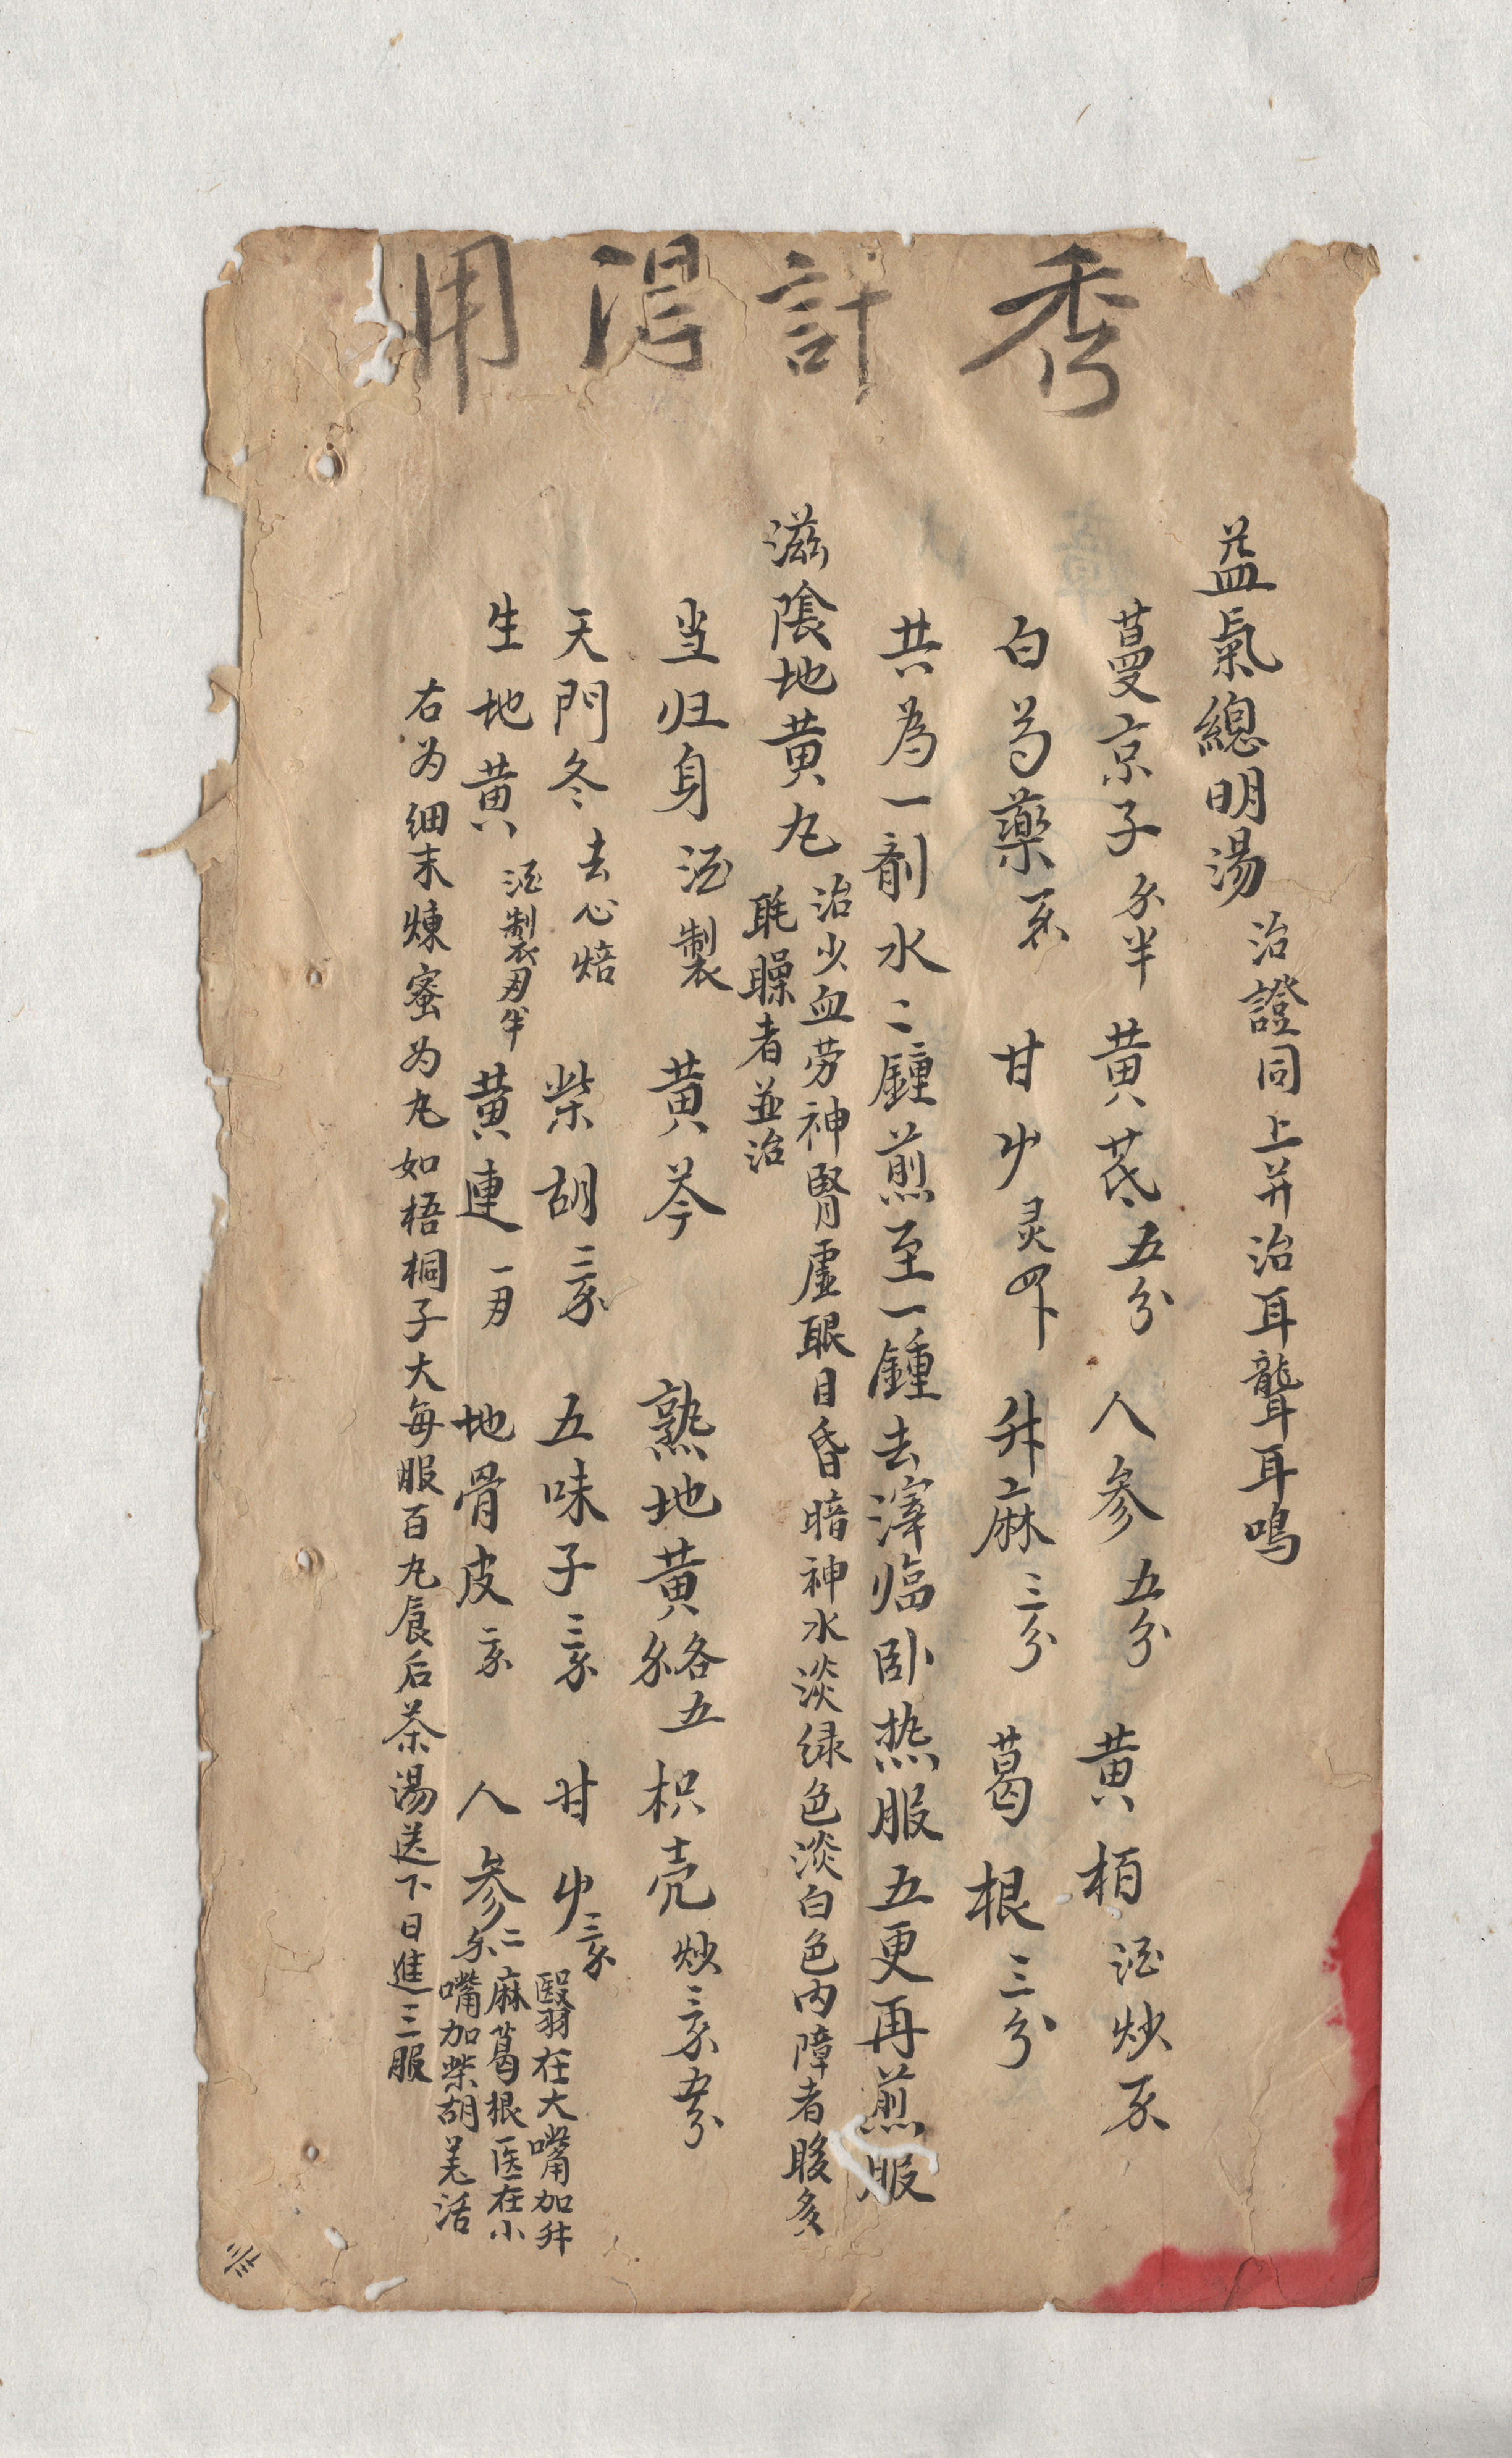 秀計淂用
益氣總明湯 治證同上并治耳聾耳鳴
蔓京子 半 黄芪 五分 人參 五分 黄栢 酒炒
白芍藥 甘 升麻 三分 葛根 三分
共為一劑水二鍾煎至一鍾去滓临卧热服五更再煎服
滋陰地黄丸 治少血劳神腎虚眼目昏暗神水淡绿色淡白色内障者 多
眊矂者並治
当归身 酒製 黄芩 熟地黄 各五 枳壳 炒三
天門冬 去心焙 柴胡 五味子 三 甘
生地黄 酒製 半 黄連 一 地骨皮 人參 二
翳在大嘴加升
麻葛根医在小
嘴加柴胡羌活
右为细末煉蜜为丸如梧桐子大每服百丸食后茶湯送下日進三服